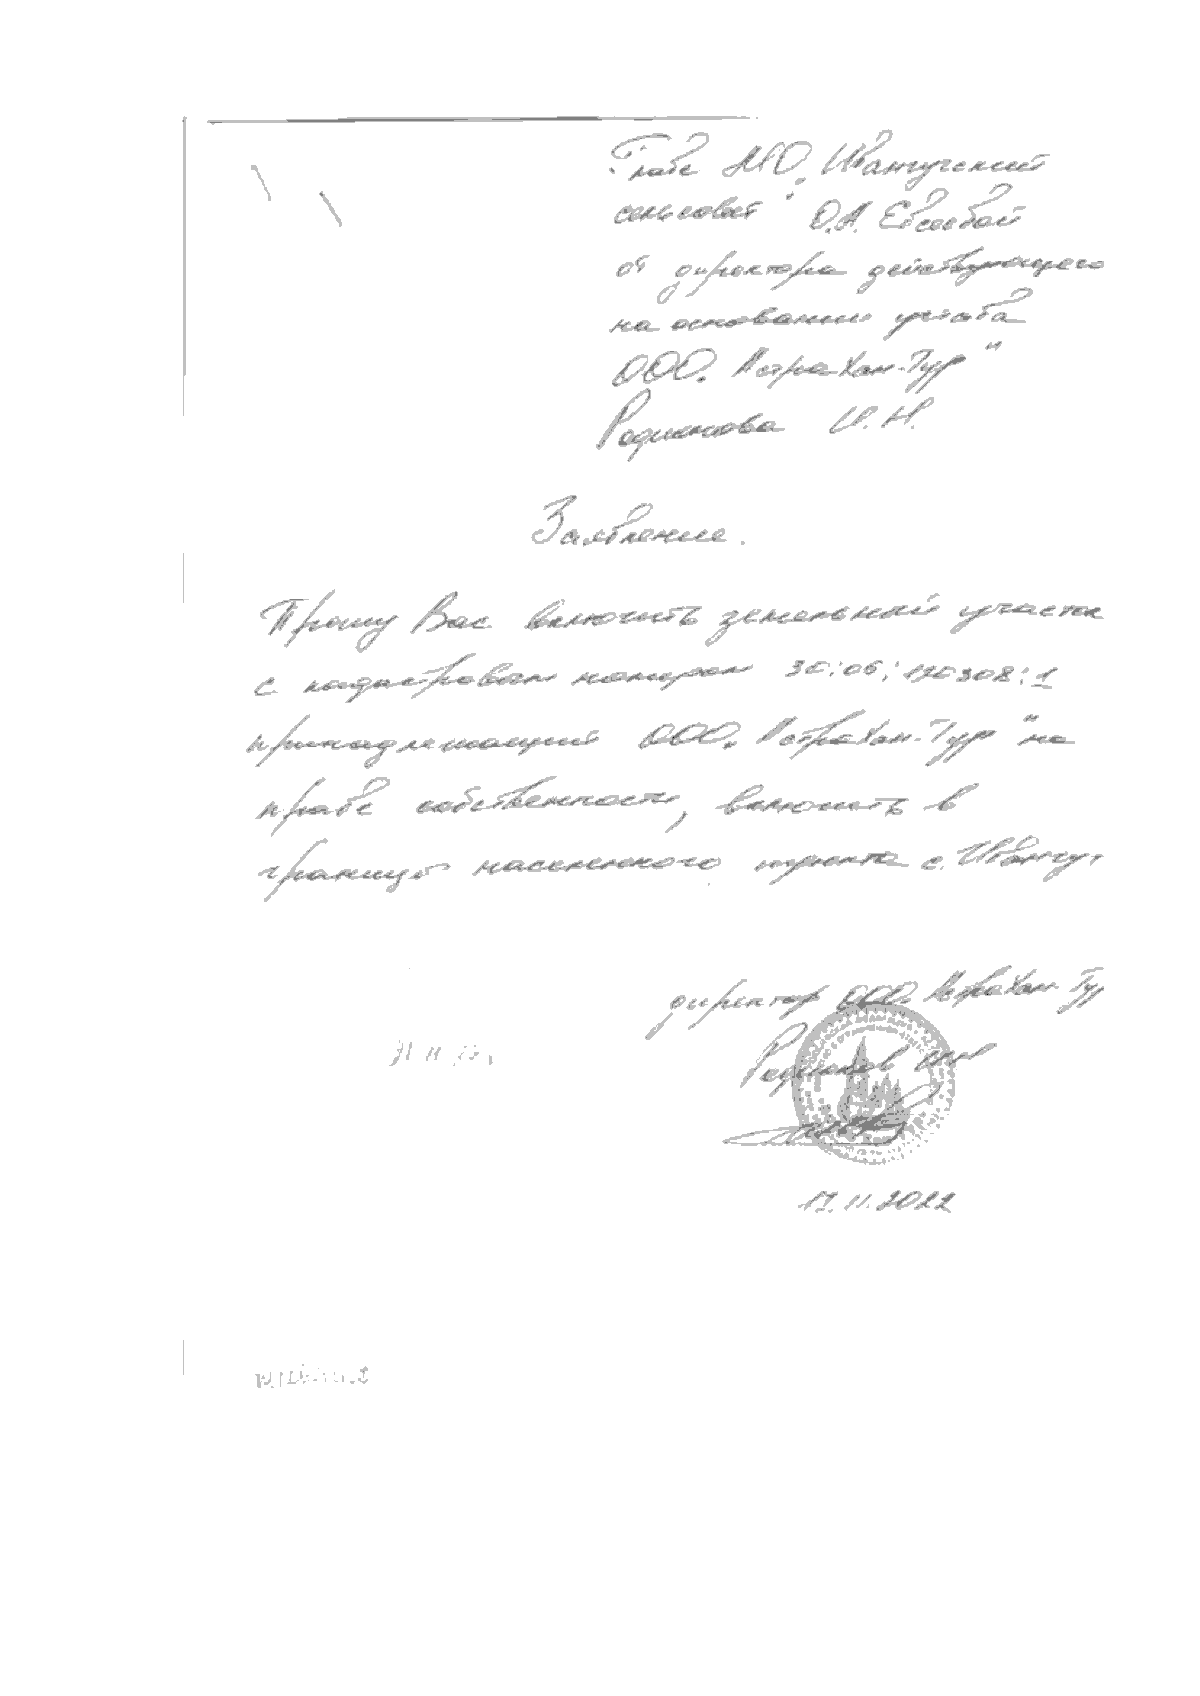 Главе МО „Иванчугский
сельсовет" О.А. Евсеевой
от директора действующего
на основании устава
ООО „АстраХан-Тур"
Родионова И.Н.
Заявление.
Прошу Вас включить земельный участок
с кадастровым номером 30:06:120308:1
принадлежащий ООО „АстраХан-Тур" на
праве собственности, включить в
границы населенного пункта с. Иванчуг
директор ООО „АстраХан-Тур
Родионов И.Н.
17.11.2022